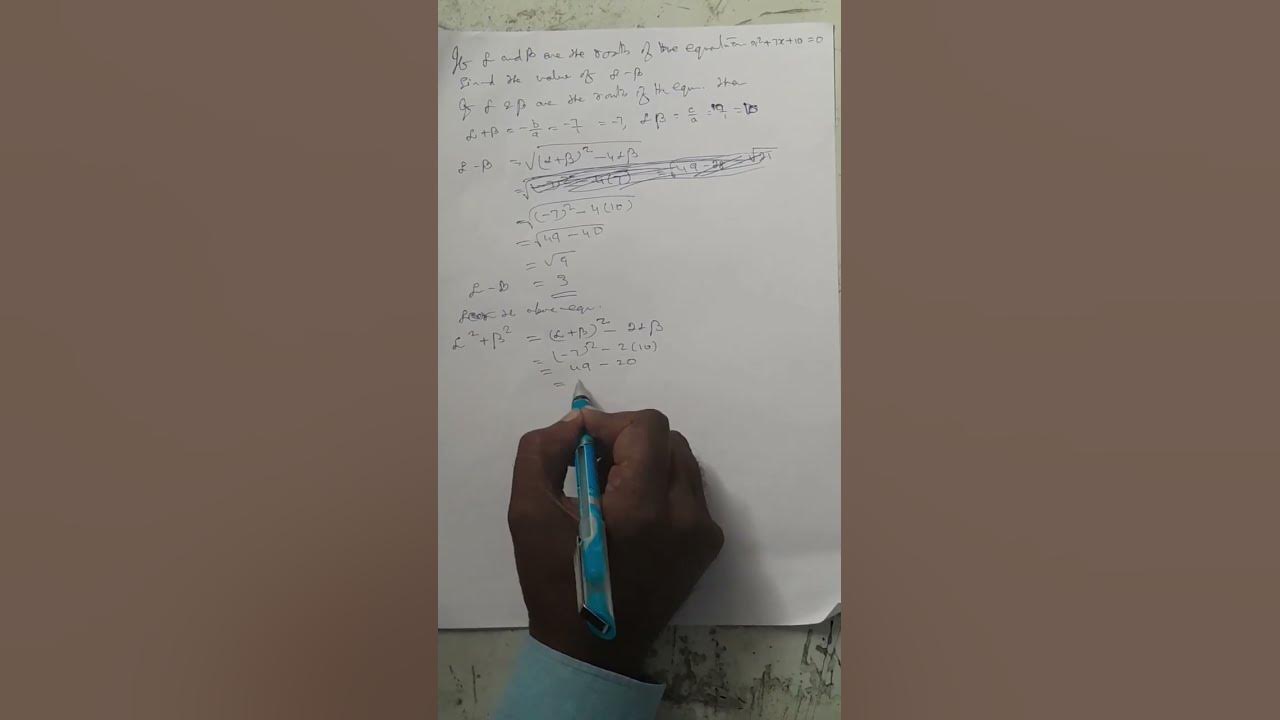 If α and β are the roots of the equation x²+7x+10=0
find the value of α-β
If α & β are the roots of the equn. then
α+β = -b/a = -7/1 = -7, αβ = c/a = 10/1 = 10
α-β = √(α+β)² - 4αβ
= √(-7)² - 4(10)
= √49-40
= √9
α-β = 3
the above equn.
α²+β² = (α+β)² - 2αβ
= (-7)² - 2(10)
= 49 - 20
=